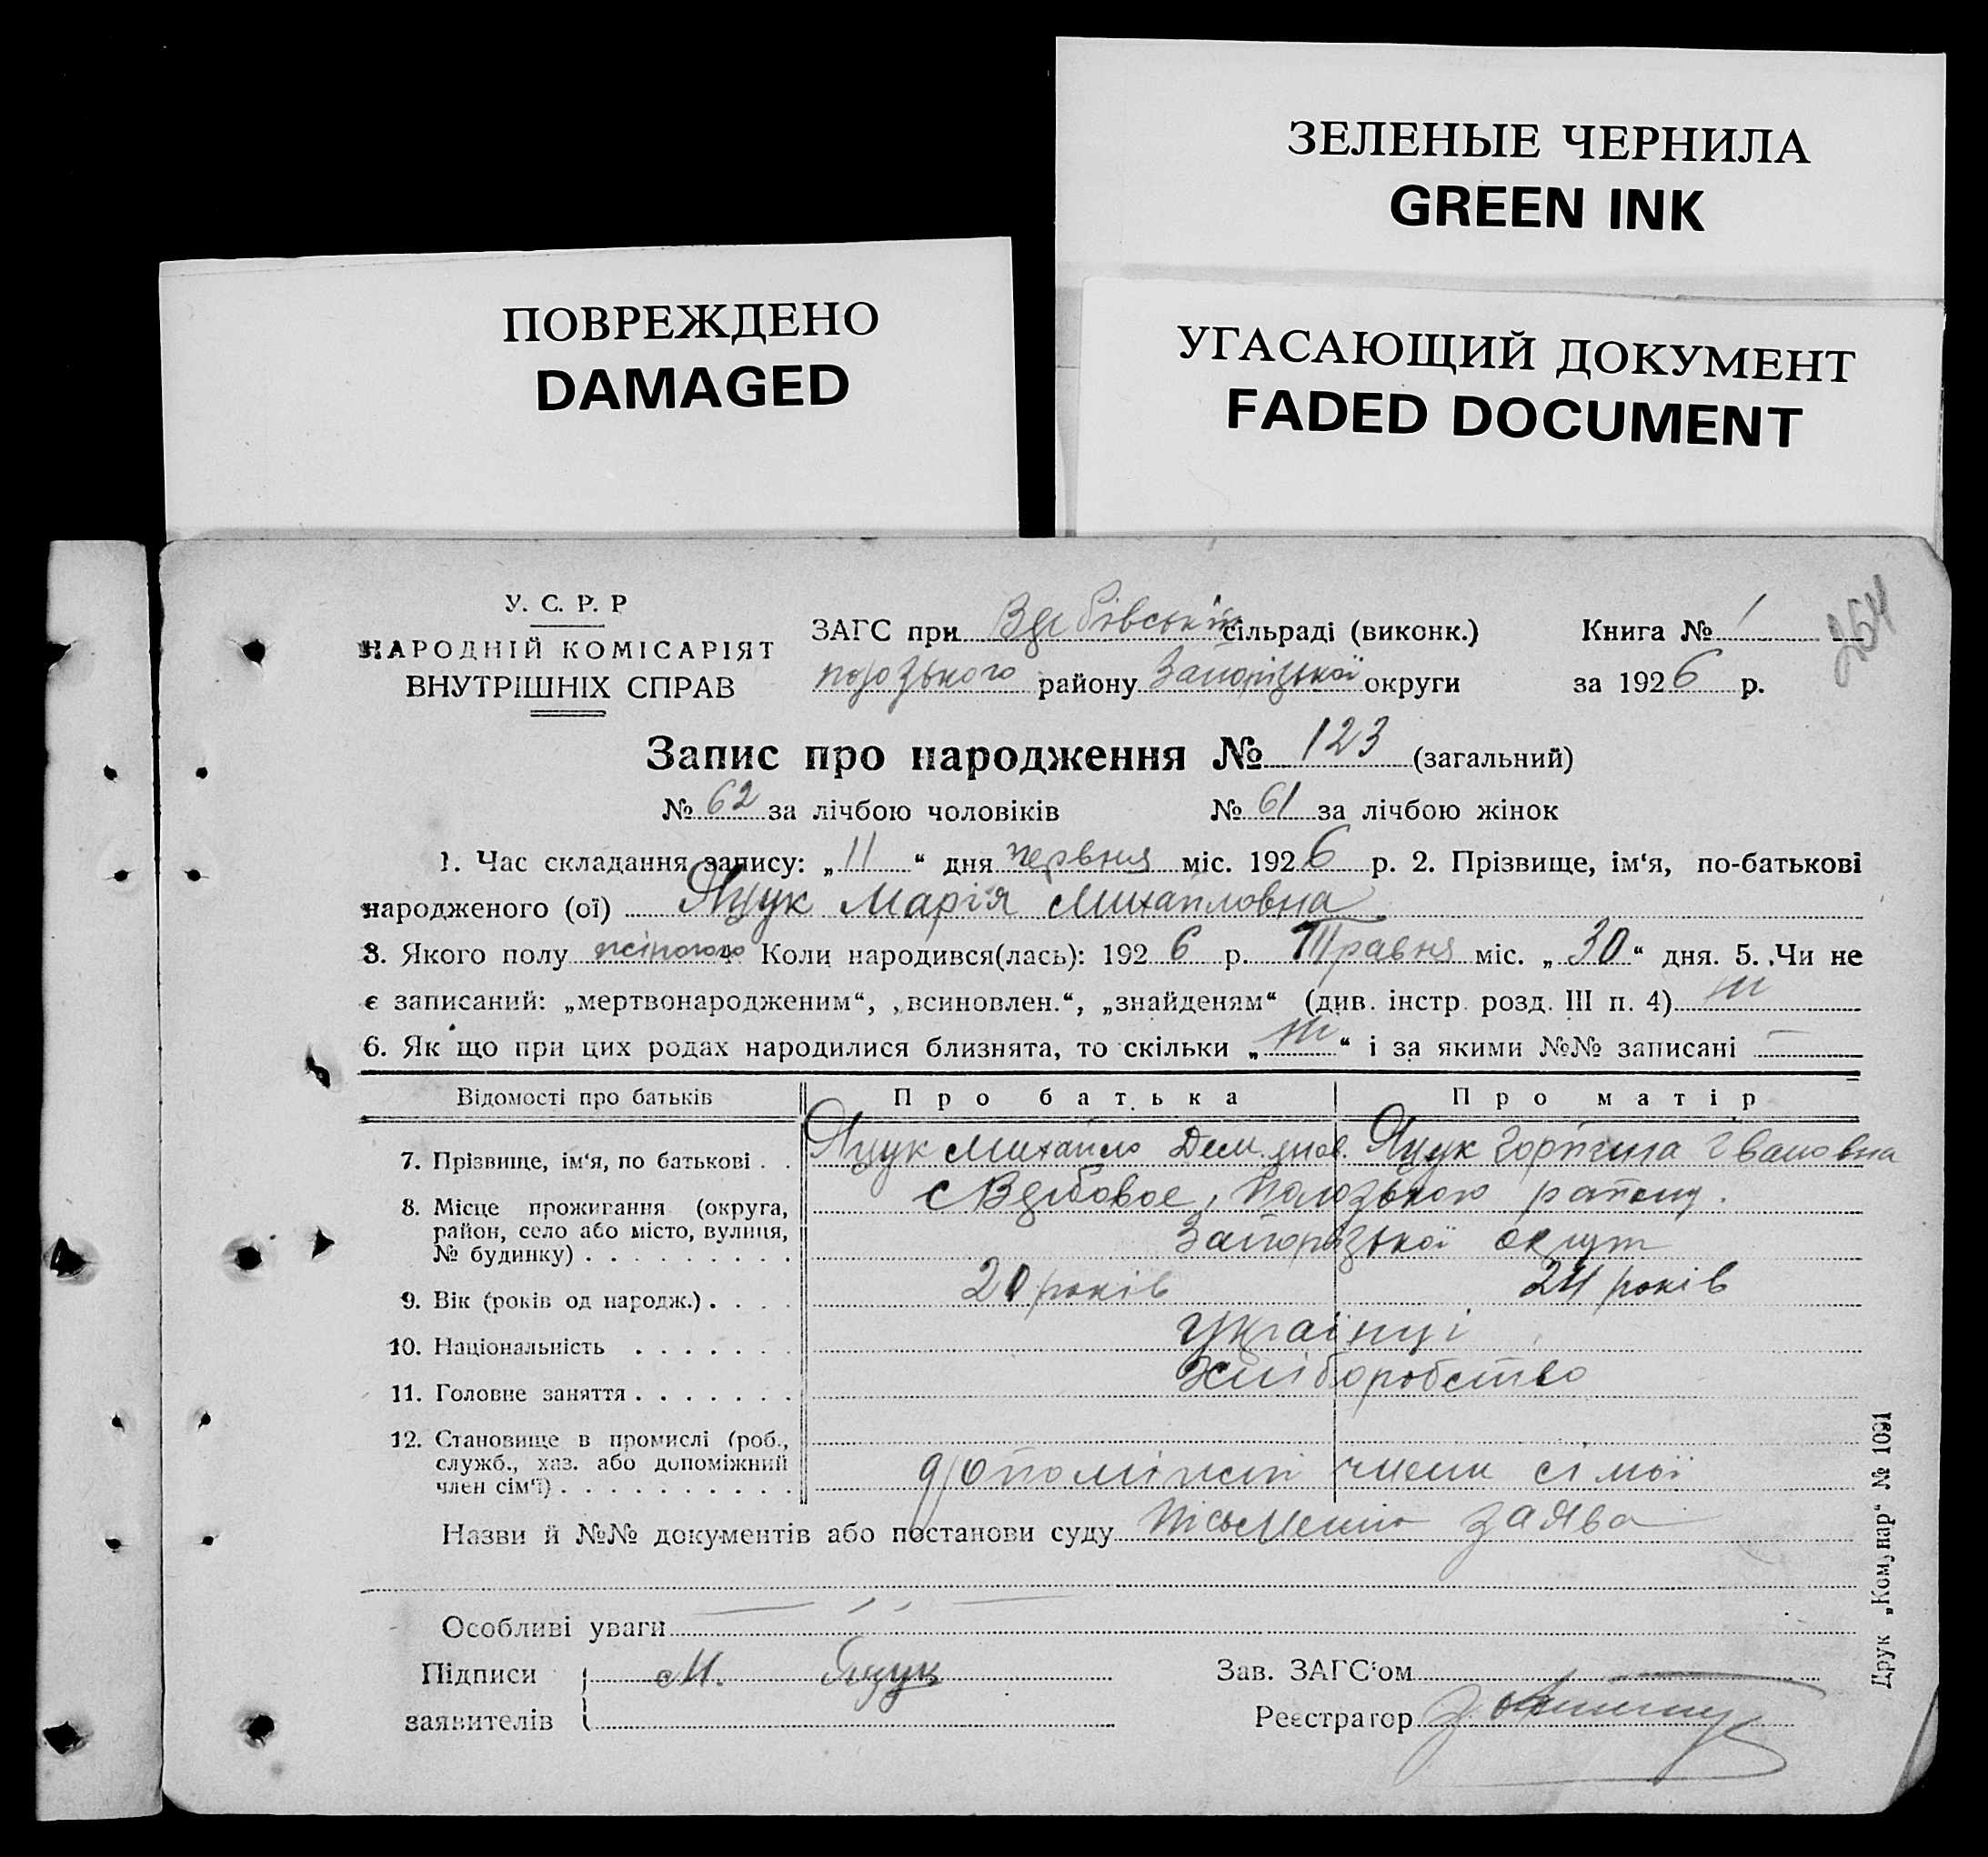 ЗЕЛЕНЫЕ ЧЕРНИЛА
GREEN INK
ПОВРЕЖДЕНО
DAMAGED
УГАСАЮЩИЙ ДОКУМЕНТ
FADED DOCUMENT
264
У. С. Р. Р
НАРОДНІЙ КОМІСАРІЯТ
ВНУТРІШНІХ СПРАВ
ЗАГС при сільраді (виконк.) Книга № 1
району Запорізької округи за 1926 р.
Запис про народження № 123 (загальний)
№ 62 за лічбою чоловіків № 61 за лічбою жінок
1. Час складання запису: „11“ дня червня міс. 1926 р. 2. Прізвище, ім‘я, по-батькові
народженого (ої) Яцук Марія Михайловна
3. Якого полу жіночого 4 Коли народився(лась): 1926 р. Травня міс. „30“ дня. 5. Чи не
є записаний: „мертвонародженим“, „всиновлен.“, „знайденям“ (див. інстр. розд. III п. 4) ні
6. Як що при цих родах народилися близнята, то скільки „ні“ і за якими №№ записані —
Відомості про батьків Про батька Про матір
7. Прізвище, ім‘я, по батькові . . Яцук Михайло Яцук Горпина Івановна
8. Місце проживання (округа,
район, село або місто, вулиця,
№ будинку) . . . . . . . . . с Вербовое, Полозького району.
Запорізької округи
9. Вік (років од народж.) . . . . 20 років 24 років
10. Національність . . . . . . . Українці
11. Головне заняття . . . . . . . Хліборобство
12. Становище в промислі (роб.,
служб., хаз. або допоміжний
член сім‘ї) . . . . . . . . . . допоміжні члени сімьї
Назви й №№ документів або постанови суду заява
Особливі уваги
Підписи М. Яцук Зав. ЗАГС‘ом
заявителів Реєстратор
Друк „Комунар“ № 1091